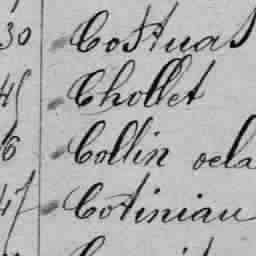 30 Costuas
45 Chollet
6 Collin oela
47 Cotiniau